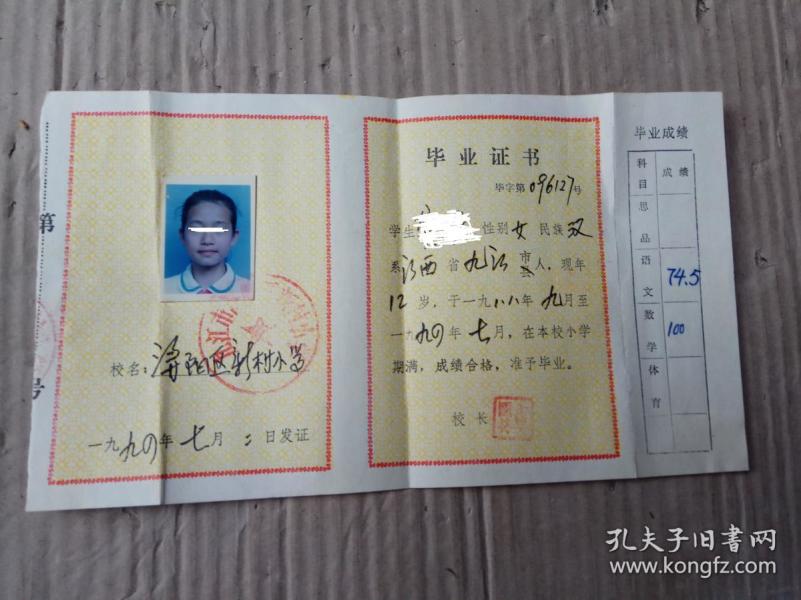 第
号
校名：浔阳区新村小学
一九九四年七月二日发证
毕业证书
毕字第096127号
学生 性别女民族汉
系江西省九江市县人，现年
12岁，于一九八八年九月至
一九九四年七月，在本校小学
期满，成绩合格，准予毕业。
校长
毕业成绩
科目 成绩
思品
语文 74.5
数学 100
体育
孔夫子旧书网
www.kongfz.com